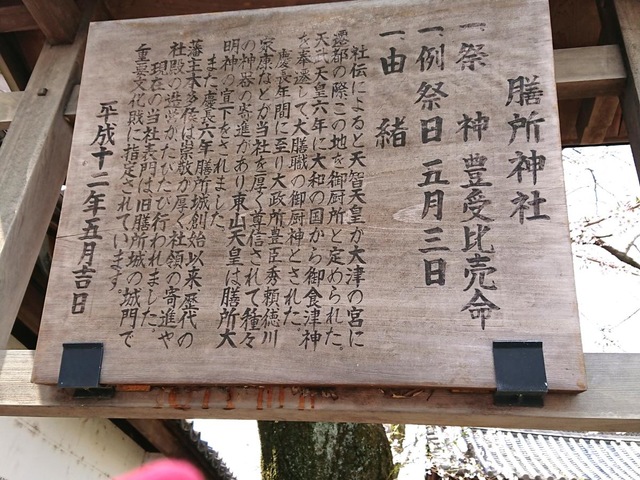 膳所神社
一、祭 神 豊受比売命
一、例祭日 五月三日
一、由 緒
社伝によると天智天皇が大津の宮に
遷都の際この地を御厨所と定められた。
天武天皇六年に大和の国から御食津神
を奉遷して大膳職の御厨神とされた
慶長年間に至り大政所豊臣秀頼徳川
家康などが当社を厚く尊信されて種々
の神器の寄進があり東山天皇は膳所大
明神の宣下をされました。
また慶長六年膳所城創始以来歴代の
藩主本多侯は崇敬が厚く社領の寄進や
社殿の造営がたびたび行われました
現在の当社表門は旧膳所城の城門で
重要文化財に指定されています。
平成十二年五月吉日